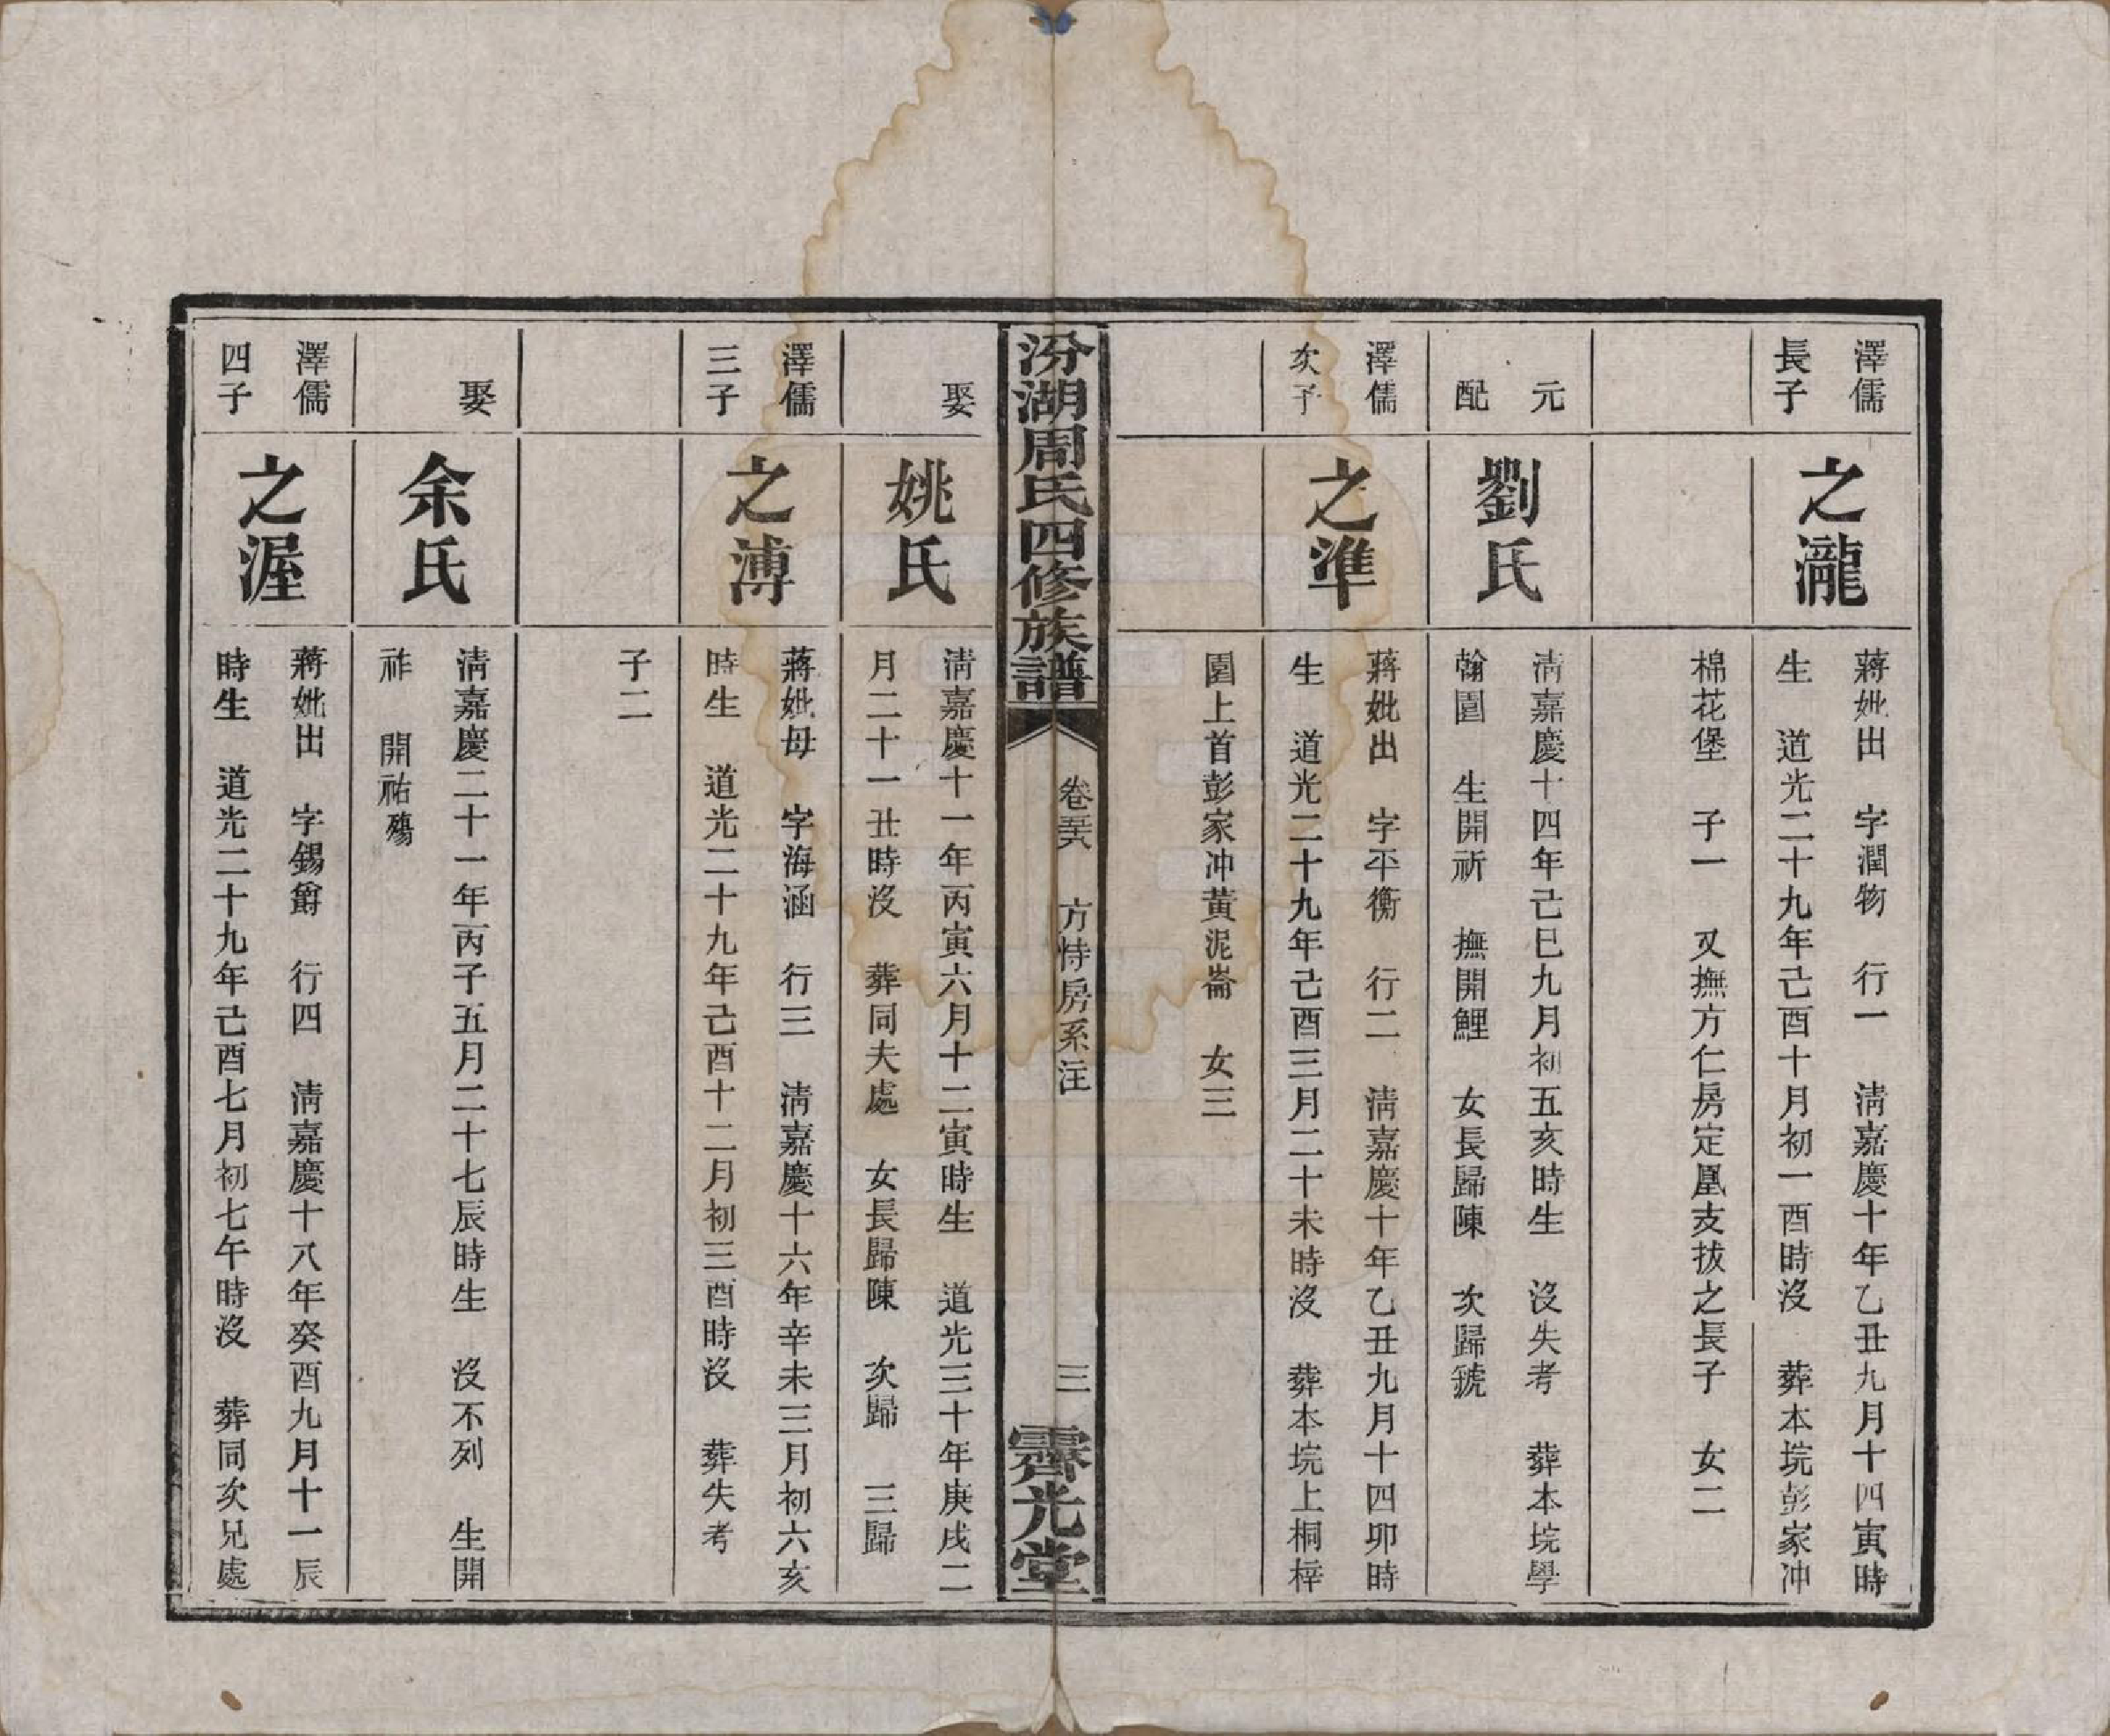 澤儒
長子
之瀧
蔣妣出　字潤物　行一　淸嘉慶十年乙丑九月十四寅時
生　道光二十九年己酉十月初一酉時沒　葬本垸彭家冲
棉花堡　子一　又撫方仁房定凰支拔之長子　女二
元
配
劉氏
淸嘉慶十四年己巳九月初五亥時生　沒失考　葬本垸學
翰園　生開祈　撫開鯉　女長歸陳　次歸虢
澤儒
次子
之準
蔣妣出　字平衡　行二　淸嘉慶十年乙丑九月十四卯時
生　道光二十九年己酉三月二十未時沒　葬本垸上桐梓
園上首彭家冲黃泥崙　女三
汾湖周氏四修族譜
卷 方恃房系注
三
霽光堂
娶
姚氏
淸嘉慶十一年丙寅六月十二寅時生　道光三十年庚戌二
月二十一丑時沒　葬同夫處　女長歸陳　次歸　三歸
澤儒
三子
之溥
蔣妣毋　字海涵　行三　淸嘉慶十六年辛未三月初六亥
時生　道光二十九年己酉十二月初三酉時沒　葬失考
子二
娶
余氏
淸嘉慶二十一年丙子五月二十七辰時生　沒不列　生開
祚　開祐殤
澤儒
四子
之渥
蔣妣出　字錫爵　行四　淸嘉慶十八年癸酉九月十一辰
時生　道光二十九年己酉七月初七午時沒　葬同次兄處